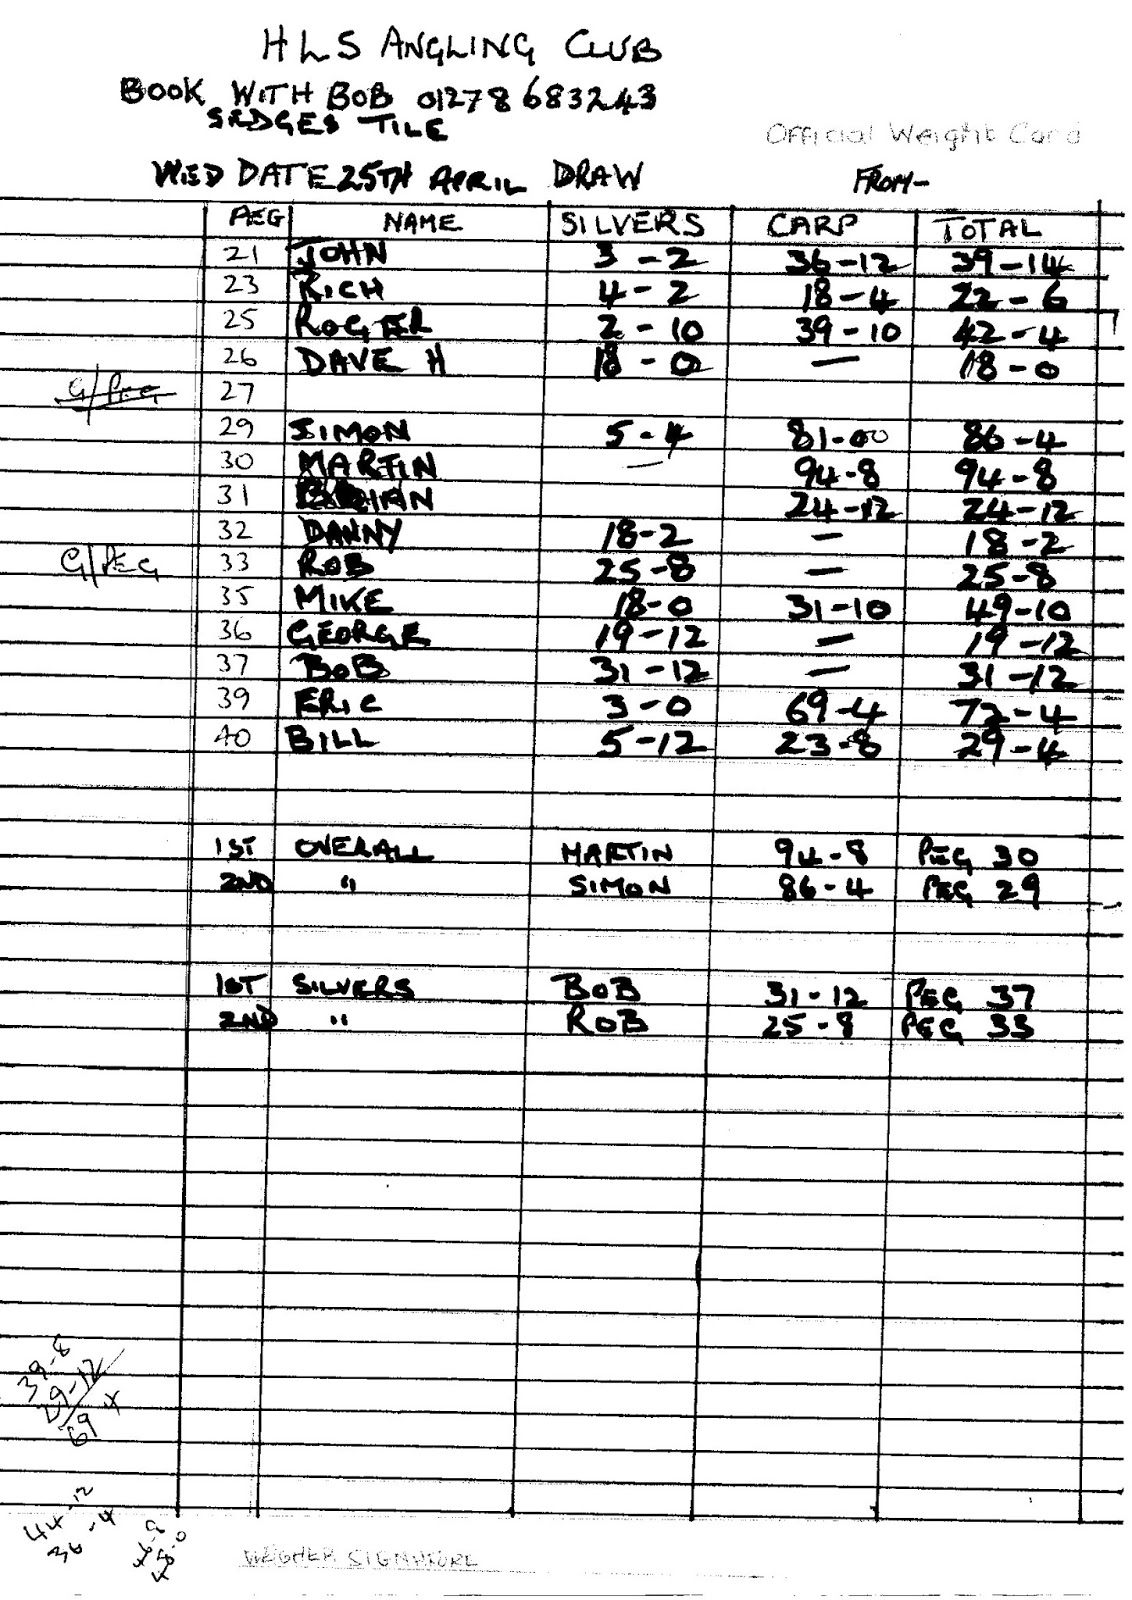 HLS ANGLING CLUB
BOOK WITH BOB 01278 683243
SEDGES TILE
Official Weight Card
WED DATE 25TH APRIL DRAW FROM-
PEG NAME SILVERS CARP TOTAL
21 JOHN 3-2 36-12 39-14
23 RICH 4-2 18-4 22-6
25 ROGER 2-10 39-10 42-4
26 DAVE H 18-0 — 18-0
G/PEG 27
29 SIMON 5-4 81-00 86-4
30 MARTIN — 94-8 94-8
31 24-12 24-12
32 DANNY 18-2 — 18-2
G/PEG 33 ROB 25-8 — 25-8
35 MIKE 18-0 31-10 49-10
36 GEORGE 19-12 — 19-12
37 BOB 31-12 — 31-12
39 ERIC 3-0 69-4 72-4
40 BILL 5-12 23-8 29-4
1ST OVERALL MARTIN 94-8 PEG 30
2ND " SIMON 86-4 PEG 29
1ST SILVERS BOB 31-12 PEG 37
2ND " ROB 25-8 PEG 33
39-8
29-12
69 4
44-12
36-4
WEIGHER SIGNATURE